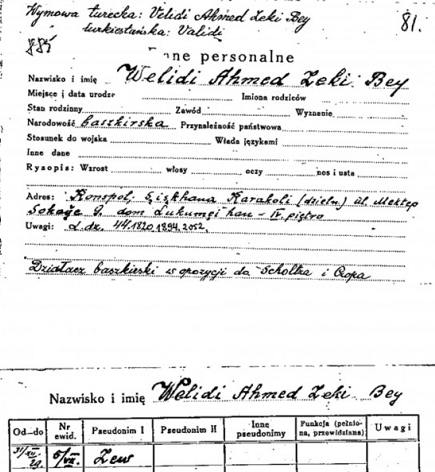 Wymowa turecka: Velidi Ahmed Zeki Bey
turkiestańska: Validi
81.
ne personalne
Nazwisko i imię Welidi Ahmed Zeki Bey
Miejsce i data urodz. Imiona rodziców
Stan rodzinny Zawód Wyznanie
Narodowość baszkirska Przynależność państwowa
Stosunek do wojska Włada językami
Inne dane
Rysopis: Wzrost włosy oczy nos i usta
Adres: Konspol, Karakoli (dzieln.) ul. Mektep
Sokağı dom han - IV. piętro
Uwagi: L. dz. 44.1820.1894.2052.
Działacz baszkirski w opozycji do i
Nazwisko i imię Welidi Ahmed Zeki Bey
Od—do Nr ewid. Pseudonim I Pseudonim II Inne pseudonimy Funkcja (pełniona, przewidziana) Uwagi
5/VII. Zew